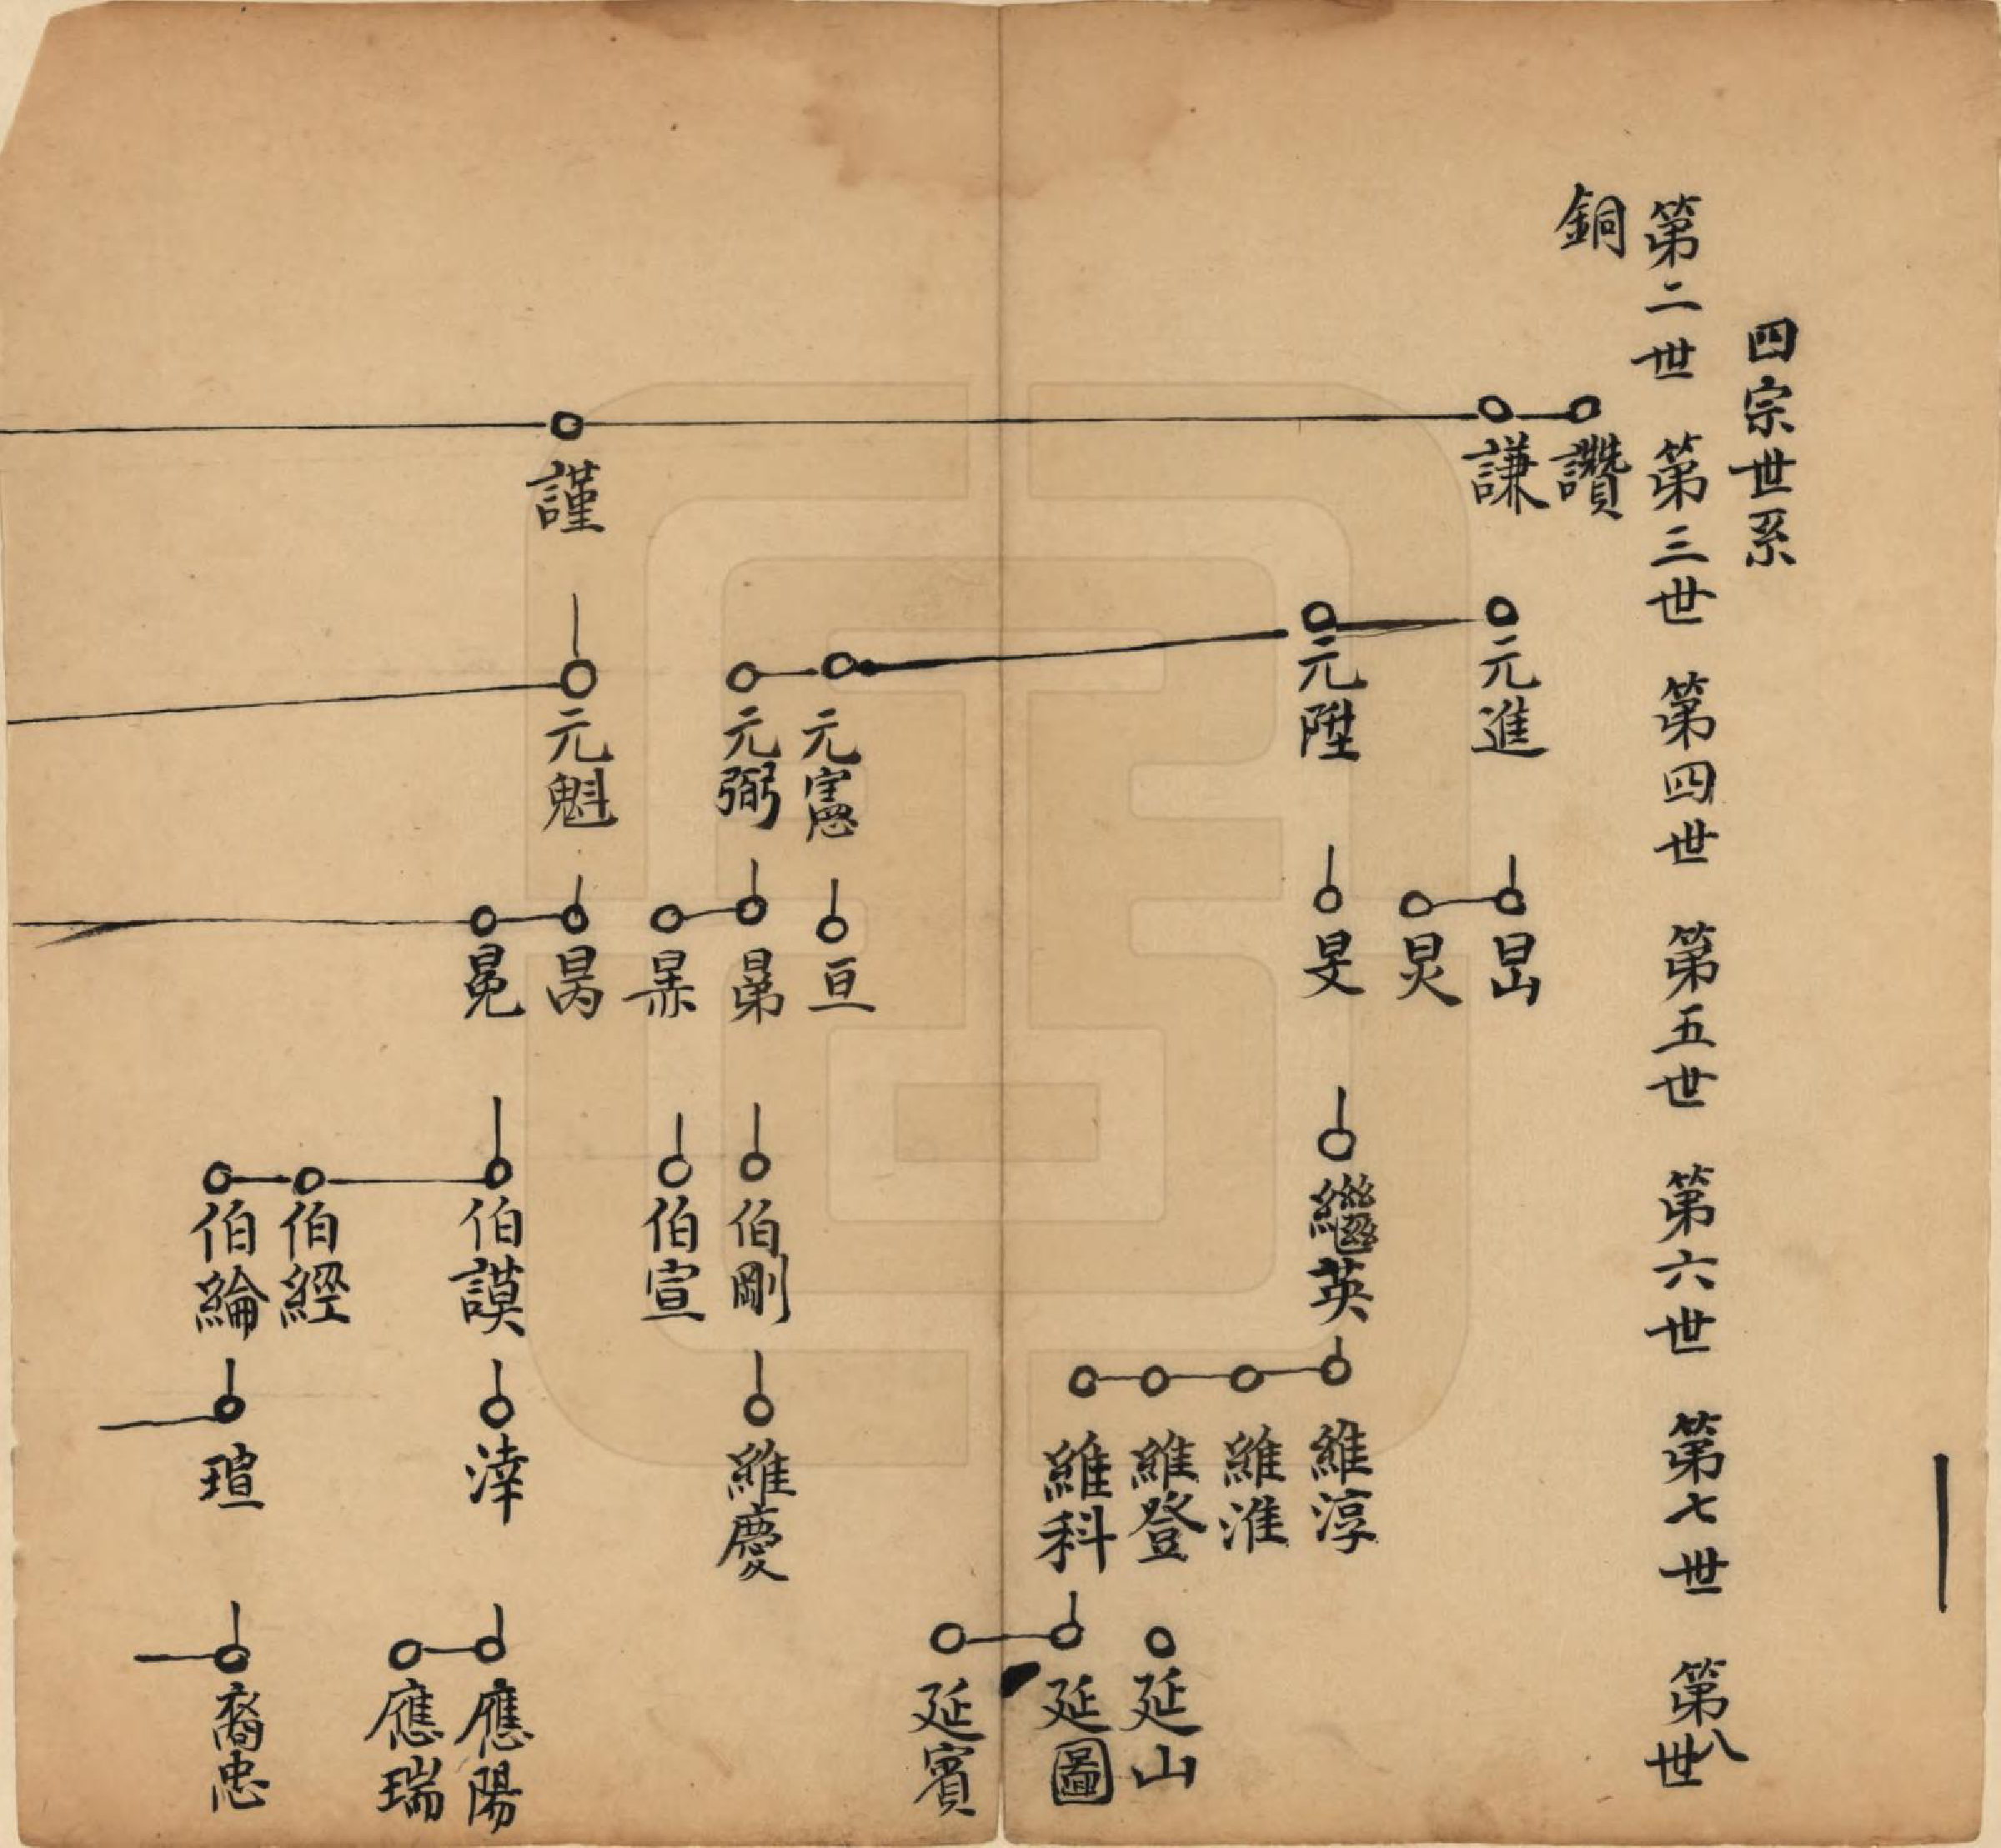 四宗世系
第二世 第三世 第四世 第五世 第六世 第七世 第八世
銅
讚
謙 元進 昆
炅
元陞 旻 繼英 維淳
維淮
維登 延山
維科 延圖
延賓
元憲 亘
元弼 伯剛 維慶
伯宣
謹 元魁 昺
冕 伯謨 涬 應陽
應瑞
伯經
伯綸 瑄 裔忠